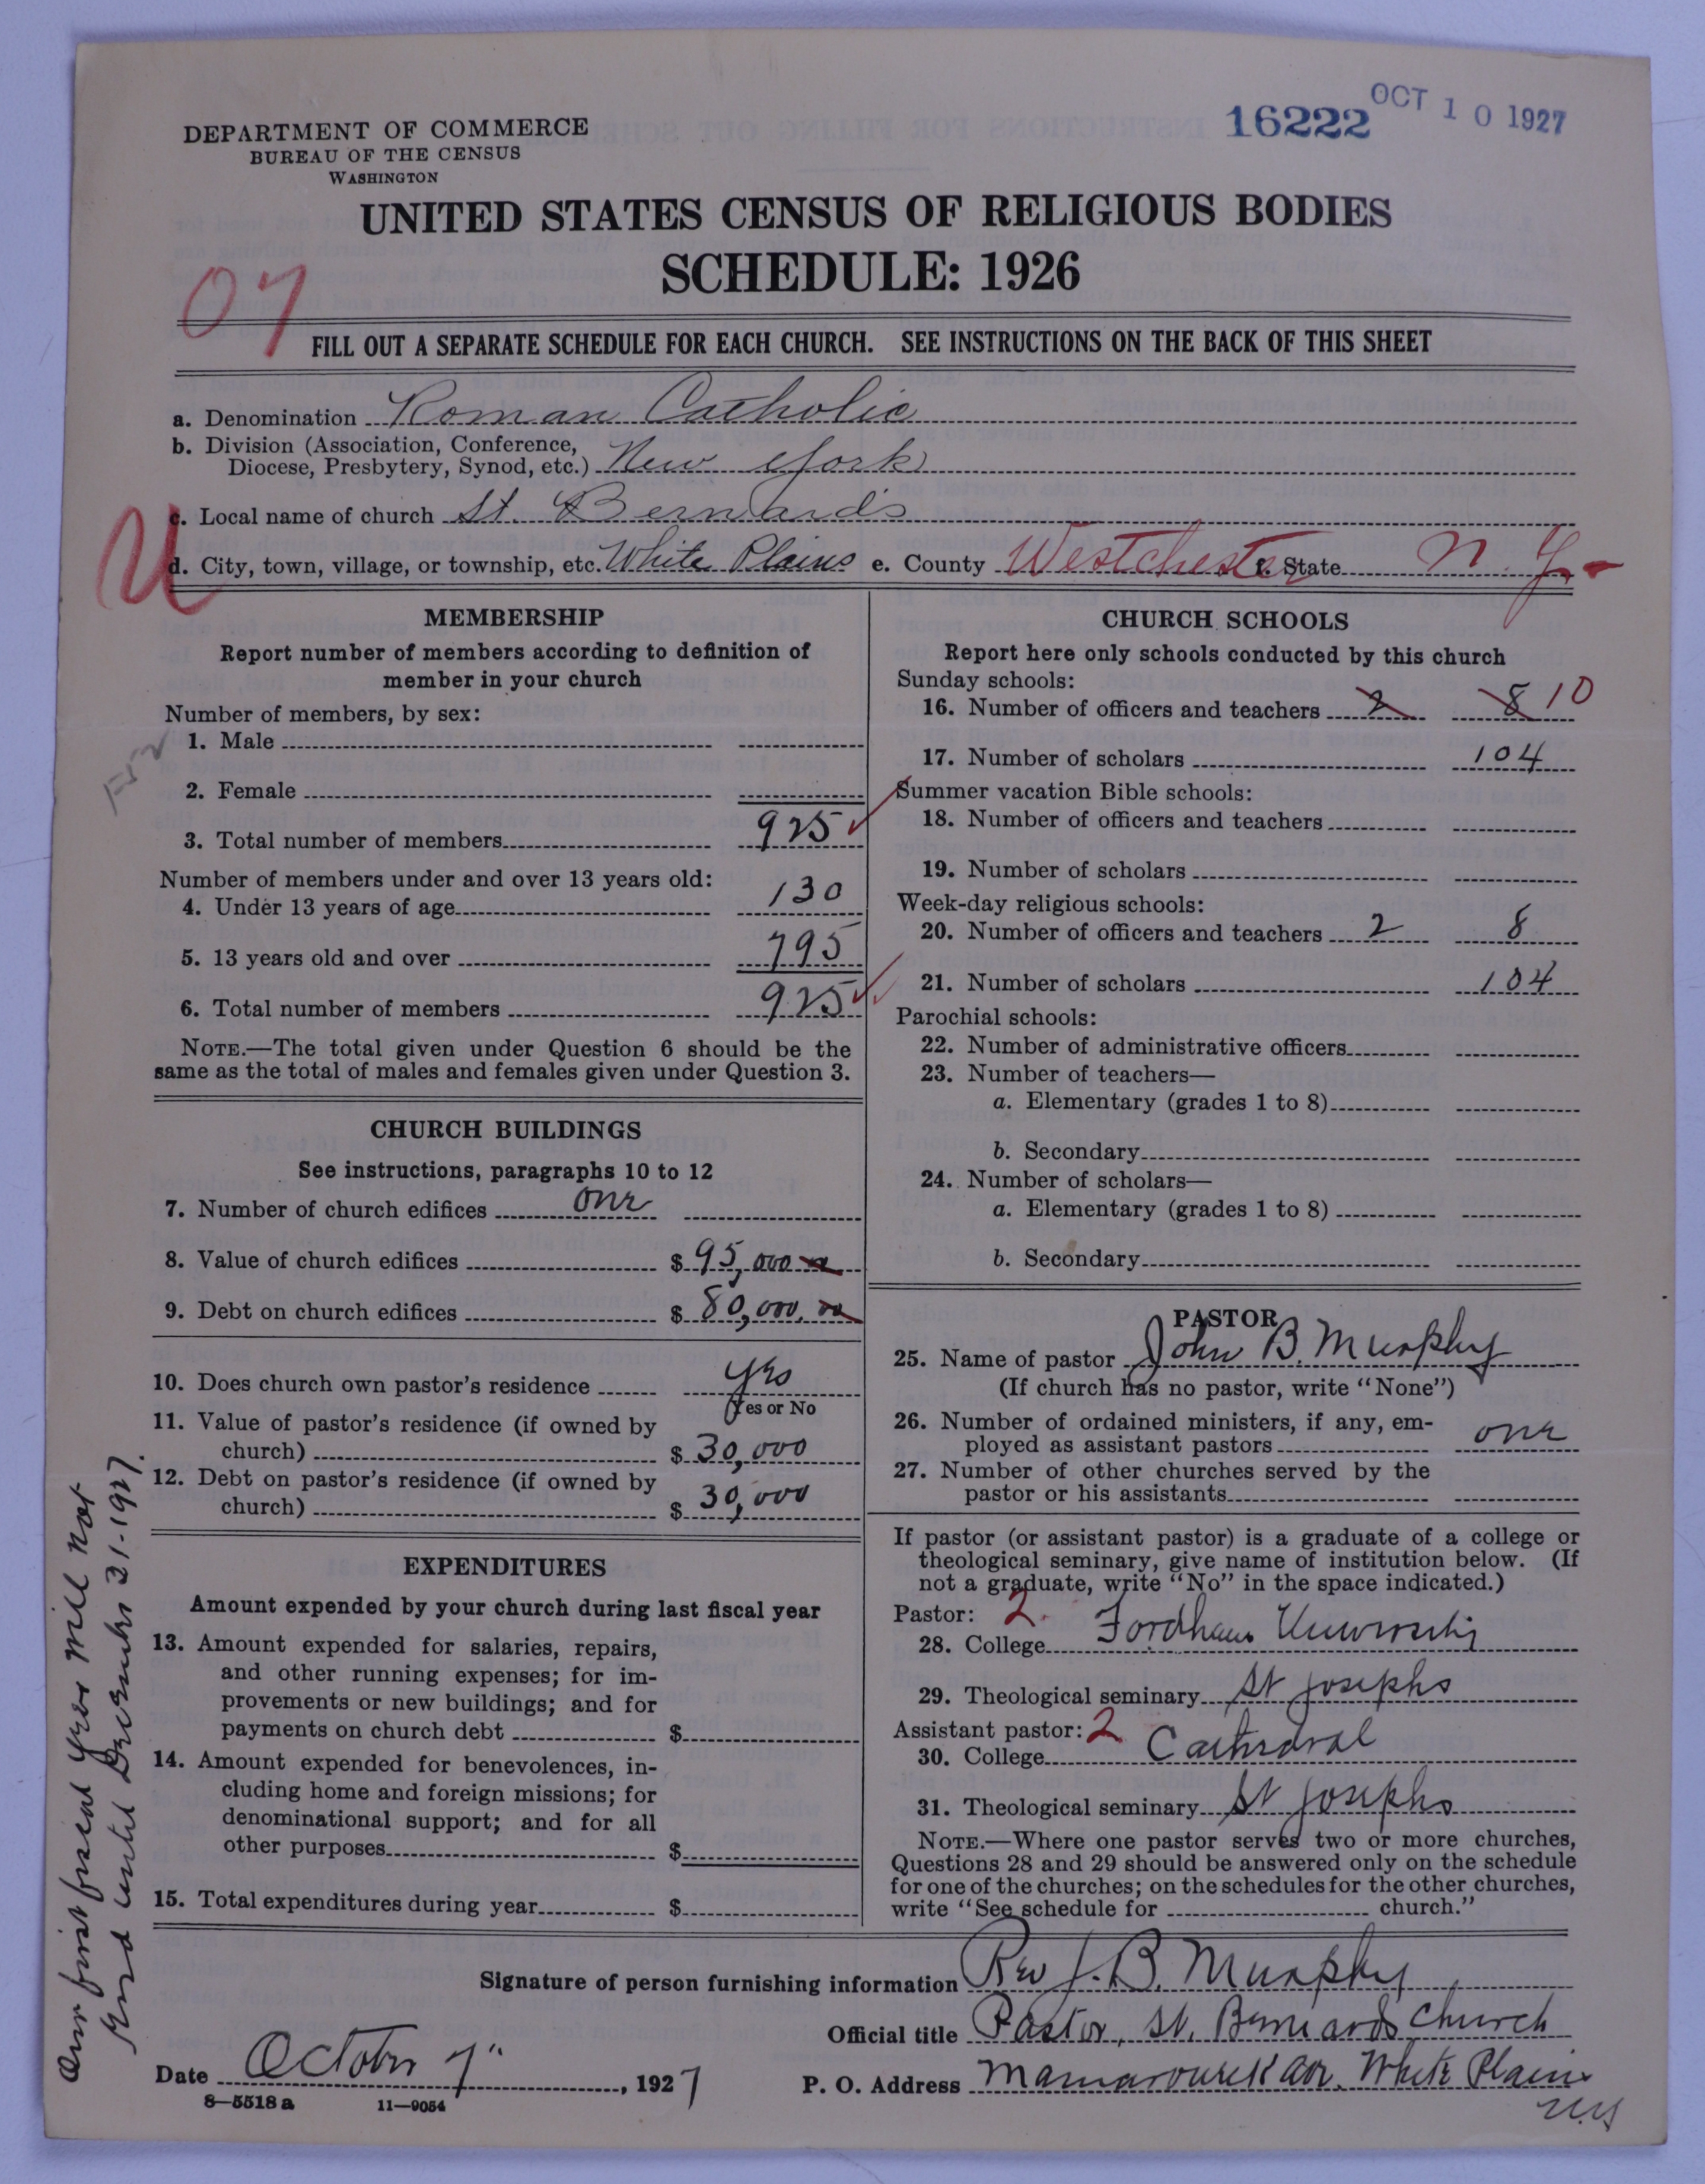 16222 OCT 10 1927
DEPARTMENT OF COMMERCE
BUREAU OF THE CENSUS
WASHINGTON
UNITED STATES CENSUS OF RELIGIOUS BODIES
SCHEDULE: 1926
07
FILL OUT A SEPARATE SCHEDULE FOR EACH CHURCH. SEE INSTRUCTIONS ON THE BACK OF THIS SHEET
a. Denomination Roman Catholic
b. Division (Association, Conference,
Diocese, Presbytery, Synod, etc.) New York
c. Local name of church St. Bernard's
U
d. City, town, village, or township, etc. White Plains e. County Westchester f. State N.Y.
MEMBERSHIP
Report number of members according to definition of
member in your church
Number of members, by sex:
1. Male
2. Female
3. Total number of members 925
Number of members under and over 13 years old:
4. Under 13 years of age 130
5. 13 years old and over 795
6. Total number of members 925
NOTE.—The total given under Question 6 should be the
same as the total of males and females given under Question 3.
CHURCH BUILDINGS
See instructions, paragraphs 10 to 12
7. Number of church edifices one
8. Value of church edifices $ 95,000
9. Debt on church edifices $ 80,000
10. Does church own pastor's residence yes
Yes or No
11. Value of pastor's residence (if owned by
church) $ 30,000
12. Debt on pastor's residence (if owned by
church) $ 30,000
EXPENDITURES
Amount expended by your church during last fiscal year
13. Amount expended for salaries, repairs,
and other running expenses; for im-
provements or new buildings; and for
payments on church debt $
14. Amount expended for benevolences, in-
cluding home and foreign missions; for
denominational support; and for all
other purposes $
15. Total expenditures during year $
Our first fiscal year will not
end until December 31-1927.
CHURCH SCHOOLS
Report here only schools conducted by this church
Sunday schools:
16. Number of officers and teachers 2 8 10
17. Number of scholars 104
Summer vacation Bible schools:
18. Number of officers and teachers
19. Number of scholars
Week-day religious schools:
20. Number of officers and teachers 2 8
21. Number of scholars 104
Parochial schools:
22. Number of administrative officers
23. Number of teachers—
a. Elementary (grades 1 to 8)
b. Secondary
24. Number of scholars—
a. Elementary (grades 1 to 8)
b. Secondary
PASTOR
25. Name of pastor John B. Murphy
(If church has no pastor, write "None")
26. Number of ordained ministers, if any, em-
ployed as assistant pastors one
27. Number of other churches served by the
pastor or his assistants
If pastor (or assistant pastor) is a graduate of a college or
theological seminary, give name of institution below. (If
not a graduate, write "No" in the space indicated.)
Pastor: 2.
28. College Fordham University
29. Theological seminary St Josephs
Assistant pastor: 2
30. College Cathedral
31. Theological seminary St Josephs
NOTE.—Where one pastor serves two or more churches,
Questions 28 and 29 should be answered only on the schedule
for one of the churches; on the schedules for the other churches,
write "See schedule for church."
Signature of person furnishing information Rev J. B. Murphy
Official title Pastor, St. Bernards Church
Date October 7", 1927
P. O. Address Mamaroneck Ave. White Plains
N.Y
8—5518a 11—9054